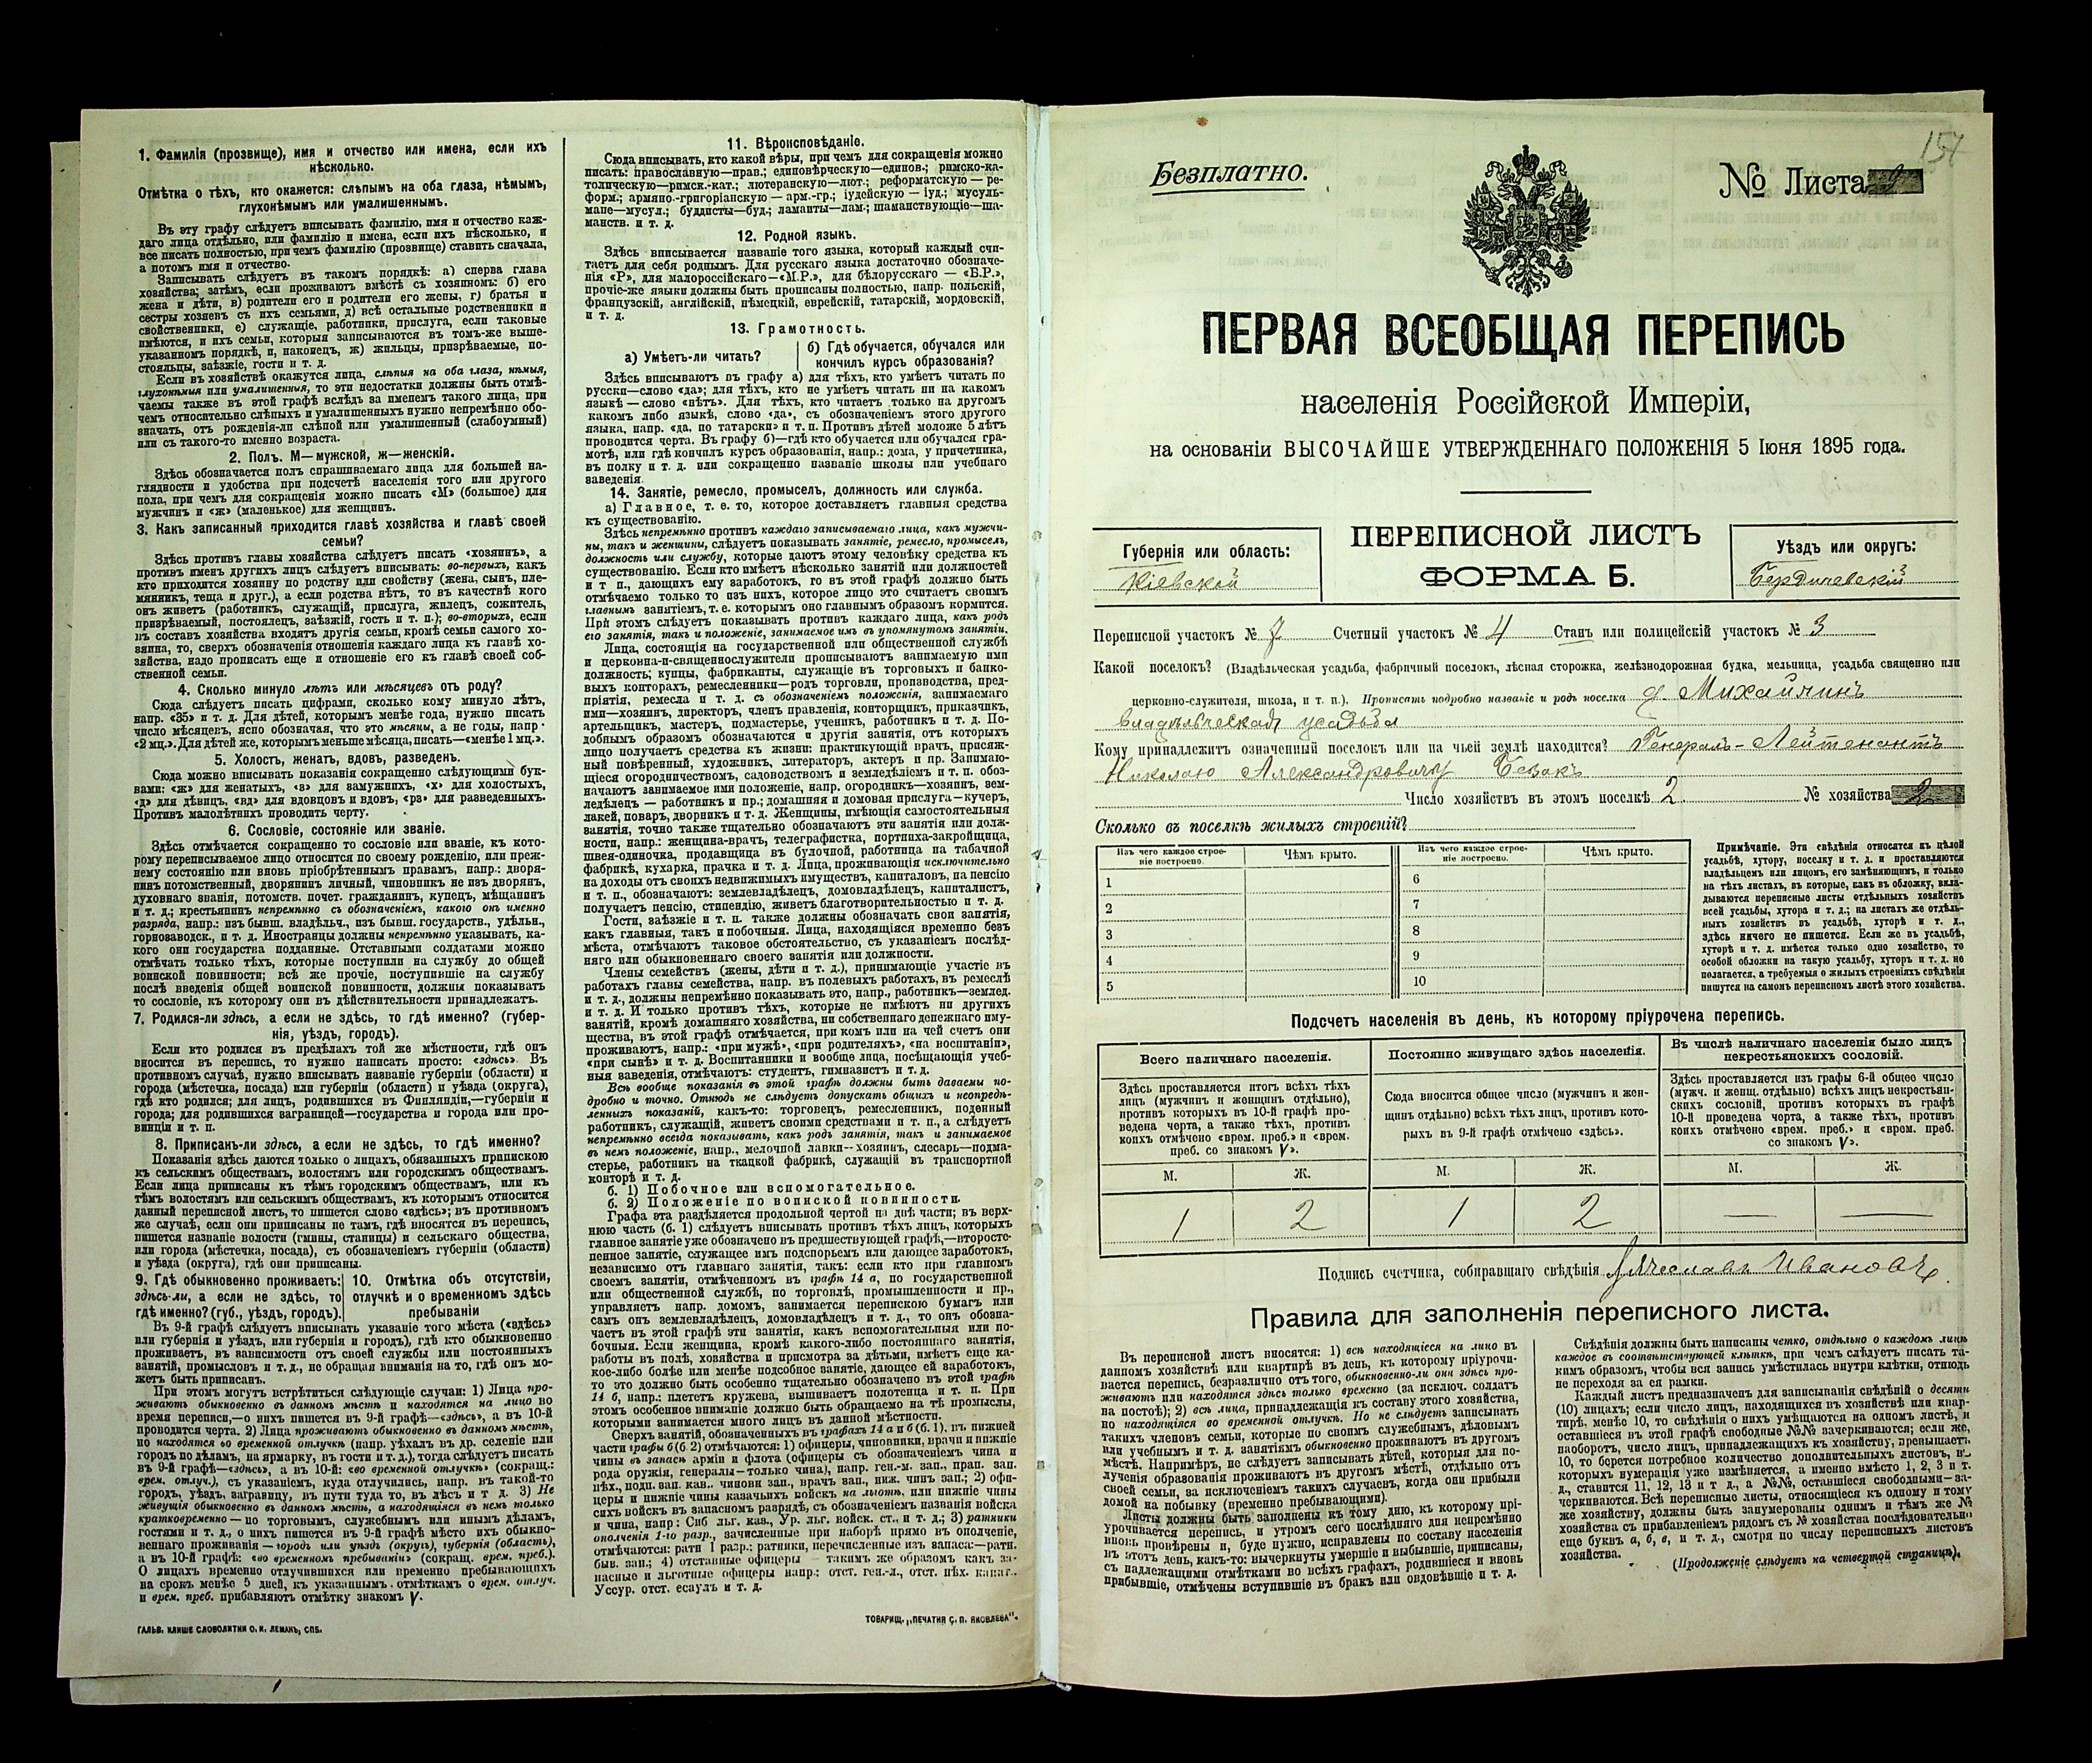 1. Фамилія (прозвище), имя и отчество или имена, если ихъ
нѣсколько.
Отмѣтка о тѣхъ, кто окажется: слѣпымъ на оба глаза, нѣмымъ,
глухонѣмымъ или умалишеннымъ.
Въ эту графу слѣдуетъ вписывать фамилію, имя и отчество каж-
даго лица отдѣльно, или фамилію и имена, если ихъ нѣсколько, и
все писать полностью, при чемъ фамилію (прозвище) ставить сначала,
а потомъ имя и отчество.
Записывать слѣдуетъ въ такомъ порядкѣ: а) сперва глава
хозяйства; затѣмъ, если проживаютъ вмѣстѣ съ хозяиномъ: б) его
жена и дѣти, в) родители его и родители его жены, г) братья и
сестры хозяевъ съ ихъ семьями, д) всѣ остальные родственники и
свойственники, е) служащіе, работники, прислуга, если таковые
имѣются, и ихъ семьи, которыя записываются въ томъ-же выше-
указанномъ порядкѣ, и, наконецъ, ж) жильцы, призрѣваемые, по-
стояльцы, заѣзжіе, гости и т. д.
Если въ хозяйствѣ окажутся лица, слѣпыя на оба глаза, нѣмыя,
глухонѣмыя или умалишенныя, то эти недостатки должны быть отмѣ-
чаемы также въ этой графѣ вслѣдъ за именемъ такого лица, при
чемъ относительно слѣпыхъ и умалишенныхъ нужно непремѣнно обо-
значать, отъ рожденія-ли слѣпой или умалишенный (слабоумный)
или съ такого-то именно возраста.
2. Полъ. М—мужской, ж—женскій.
Здѣсь обозначается полъ спрашиваемаго лица для большей на-
глядности и удобства при подсчетѣ населенія того или другого
пола, при чемъ для сокращенія можно писать «М» (большое) для
мужчинъ и «ж» (маленькое) для женщинъ.
3. Какъ записанный приходится главѣ хозяйства и главѣ своей
семьи?
Здѣсь противъ главы хозяйства слѣдуетъ писать «хозяинъ», а
противъ именъ другихъ лицъ слѣдуетъ вписывать: во-первыхъ, какъ
кто приходится хозяину по родству или свойству (жена, сынъ, пле-
мянникъ, теща и друг.), а если родства нѣтъ, то въ качествѣ кого
онъ живетъ (работникъ, служащій, прислуга, жилецъ, сожитель,
призрѣваемый, постоялецъ, заѣзжій, гость и т. п.); во-вторыхъ, если
въ составъ хозяйства входятъ другія семьи, кромѣ семьи самого хо-
зяина, то, сверхъ обозначенія отношенія каждаго лица къ главѣ хо-
зяйства, надо прописать еще и отношеніе его къ главѣ своей соб-
ственной семьи.
4. Сколько минуло лѣтъ или мѣсяцевъ отъ роду?
Сюда слѣдуетъ писать цифрами, сколько кому минуло лѣтъ,
напр. «35» и т. д. Для дѣтей, которымъ менѣе года, нужно писать
число мѣсяцевъ, ясно обозначая, что это мѣсяцы, а не годы, напр.
«2 мц.». Для дѣтей же, которымъ меньше мѣсяца, писать—«менѣе 1 мц.».
5. Холостъ, женатъ, вдовъ, разведенъ.
Сюда можно вписывать показанія сокращенно слѣдующими бук-
вами: «ж» для женатыхъ, «з» для замужнихъ, «х» для холостыхъ,
«д» для дѣвицъ, «вд» для вдовцовъ и вдовъ, «рз» для разведенныхъ.
Противъ малолѣтнихъ проводить черту.
6. Сословіе, состояніе или званіе.
Здѣсь отмѣчается сокращенно то сословіе или званіе, къ кото-
рому переписываемое лицо относится по своему рожденію, или преж-
нему состоянію или вновь пріобрѣтеннымъ правамъ, напр.: дворя-
нинъ потомственный, дворянинъ личный, чиновникъ не изъ дворянъ,
духовнаго званія, потомств. почет. гражданинъ, купецъ, мѣщанинъ
и т. д.; крестьянинъ непремѣнно съ обозначеніемъ, какою онъ именно
разряда, напр.: изъ бывш. владѣльч., изъ бывш. государств., удѣльн.,
горнозаводск., и т. д. Иностранцы должны непремѣнно указывать, ка-
кого они государства подданные. Отставными солдатами можно
отмѣчать только тѣхъ, которые поступили на службу до общей
воинской повинности; всѣ же прочіе, поступившіе на службу
послѣ введенія общей воинской повинности, должны показывать
то сословіе, къ которому они въ дѣйствительности принадлежатъ.
7. Родился-ли здѣсь, а если не здѣсь, то гдѣ именно? (губер-
нія, уѣздъ, городъ).
Если кто родился въ предѣлахъ той же мѣстности, гдѣ онъ
вносится въ перепись, то нужно написать просто: «здѣсь». Въ
противномъ случаѣ, нужно вписывать названіе губерніи (области) и
города (мѣстечка, посада) или губерніи (области) и уѣзда (округа),
гдѣ кто родился; для лицъ, родившихся въ Финляндіи,—губерніи и
города; для родившихся заграницей—государства и города или про-
винціи и т. п.
8. Приписанъ-ли здѣсь, а если не здѣсь, то гдѣ именно?
Показанія здѣсь даются только о лицахъ, обязанныхъ припискою
къ сельскимъ обществамъ, волостямъ или городскимъ обществамъ.
Если лица приписаны къ тѣмъ городскимъ обществамъ, или къ
тѣмъ волостямъ или сельскимъ обществамъ, къ которымъ относится
данный переписной листъ, то пишется слово «здѣсь»; въ противномъ
же случаѣ, если они приписаны не тамъ, гдѣ вносятся въ перепись,
пишется названіе волости (гмины, станицы) и сельскаго общества,
или города (мѣстечка, посада), съ обозначеніемъ губерніи (области)
и уѣзда (округа), гдѣ они приписаны.
9. Гдѣ обыкновенно проживаетъ:
здѣсь-ли, а если не здѣсь, то
гдѣ именно? (губ., уѣздъ, городъ).
10. Отмѣтка объ отсутствіи,
отлучкѣ и о временномъ здѣсь
пребываніи
Въ 9-й графѣ слѣдуетъ вписывать указаніе того мѣста («здѣсь»
или губернія и уѣздъ, или губернія и городъ), гдѣ кто обыкновенно
проживаетъ, въ зависимости отъ своей службы или постоянныхъ
занятій, промысловъ и т. д., не обращая вниманія на то, гдѣ онъ мо-
жетъ быть приписанъ.
При этомъ могутъ встрѣтиться слѣдующіе случаи: 1) Лица про-
живаютъ обыкновенно въ данномъ мѣстѣ и находятся на лицо во
время переписи,—о нихъ пишется въ 9-й графѣ—«здѣсь», а въ 10-й
проводится черта. 2) Лица проживаютъ обыкновенно въ данномъ мѣстѣ,
но находятся во временной отлучкѣ (напр. уѣхалъ въ др. селеніе или
городъ по дѣламъ, на ярмарку, въ гости и т. д.), тогда слѣдуетъ писать
въ 9-й графѣ—«здѣсь», а въ 10-й: «во временной отлучкѣ» (сокращ.:
врем. отлуч.), съ указаніемъ, куда отлучились, напр. въ такой-то
городъ, уѣздъ, заграницу, въ пути туда то, въ лѣсъ и т д. 3) Не
живущія обыкновенно въ данномъ мѣстѣ, а находящіяся въ немъ только
кратковременно — по торговымъ, служебнымъ или инымъ дѣламъ,
гостями и т. д., о нихъ пишется въ 9-й графѣ мѣсто ихъ обыкно-
веннаго проживанія — городъ или уѣздъ (округъ), губернія (область),
а въ 10-й графѣ: «во временномъ пребываніи» (сокращ. врем. преб.).
О лицахъ временно отлучившихся или временно пребывающихъ
на срокъ менѣе 5 дней, къ указаннымъ отмѣткамъ о врем. отлуч.
и врем. преб. прибавляютъ отмѣтку знакомъ V.
ГАЛЬВ. КЛИШЕ СЛОВОЛИТНИ О. И. ЛЕМАНЪ, СПБ.
11. Вѣроисповѣданіе.
Сюда вписывать, кто какой вѣры, при чемъ для сокращенія можно
писать: православную—прав.; единовѣрческую—единов.; римско-ка-
толическую—римск.-кат.; лютеранскую—лют.; реформатскую — ре-
форм.; армяно-григоріанскую — арм.-гр.; іудейскую — іуд.; мусуль-
мане—мусул.; буддисты—буд.; ламаиты—лам.; шаманствующіе—ша-
манств. и т. д.
12. Родной языкъ.
Здѣсь вписывается названіе того языка, который каждый счи-
таетъ для себя роднымъ. Для русскаго языка достаточно обозначе-
нія «Р», для малороссійскаго—«М.Р.», для бѣлорусскаго — «Б.Р.»,
прочіе-же языки должны быть прописаны полностью, напр. польскій,
французскій, англійскій, нѣмецкій, еврейскій, татарскій, мордовскій,
и т. д.
13. Грамотность.
а) Умѣетъ-ли читать?
б) Гдѣ обучается, обучался или
кончилъ курсъ образованія?
Здѣсь вписываютъ въ графу а) для тѣхъ, кто умѣетъ читать по
русски—слово «да»; для тѣхъ, кто не умѣетъ читать ни на какомъ
языкѣ — слово «нѣтъ». Для тѣхъ, кто читаетъ только на другомъ
какомъ либо языкѣ, слово «да», съ обозначеніемъ этого другого
языка, напр. «да, по татарски» и т. п. Противъ дѣтей моложе 5 лѣтъ
проводится черта. Въ графу б)—гдѣ кто обучается или обучался гра-
мотѣ, или гдѣ кончилъ курсъ образованія, напр.: дома, у причетника,
въ полку и т. д. или сокращенно названіе школы или учебнаго
заведенія.
14. Занятіе, ремесло, промыселъ, должность или служба.
а) Главное, т. е. то, которое доставляетъ главныя средства
къ существованію.
Здѣсь непремѣнно противъ каждаго записываемаго лица, какъ мужчи-
ны, такъ и женщины, слѣдуетъ показывать занятіе, ремесло, промыселъ,
должность или службу, которые даютъ этому человѣку средства къ
существованію. Если кто имѣетъ нѣсколько занятій или должностей
и т п., дающихъ ему заработокъ, то въ этой графѣ должно быть
отмѣчаемо только то изъ нихъ, которое лицо это считаетъ своимъ
главнымъ занятіемъ, т. е. которымъ оно главнымъ образомъ кормится.
При этомъ слѣдуетъ показывать противъ каждаго лица, какъ родъ
его занятія, такъ и положеніе, занимаемое имъ въ упомянутомъ занятіи.
Лица, состоящія на государственной или общественной службѣ
и церковно-и-священнослужители прописываютъ занимаемую ими
должность; купцы, фабриканты, служащіе въ торговыхъ и банко-
выхъ конторахъ, ремесленники—родъ торговли, производства, пред-
пріятія, ремесла и т. д. съ обозначеніемъ положенія, занимаемаго
ими—хозяинъ, директоръ, членъ правленія, конторщикъ, приказчикъ,
артельщикъ, мастеръ, подмастерье, ученикъ, работникъ и т. д. По-
добнымъ образомъ обозначаются и другія занятія, отъ которыхъ
лицо получаетъ средства къ жизни: практикующій врачъ, присяж-
ный повѣренный, художникъ, литераторъ, актеръ и пр. Занимаю-
щіеся огородничествомъ, садоводствомъ и земледѣліемъ и т. п. обоз-
начаютъ занимаемое ими положеніе, напр. огородникъ—хозяинъ, зем-
ледѣлецъ — работникъ и пр.; домашняя и домовая прислуга—кучеръ,
лакей, поваръ, дворникъ и т. д. Женщины, имѣющія самостоятельныя
занятія, точно также тщательно обозначаютъ эти занятія или долж-
ности, напр.: женщина-врачъ, телеграфистка, портниха-закройщица,
швея-одиночка, продавщица въ булочной, работница на табачной
фабрикѣ, кухарка, прачка и т. д. Лица, проживающія исключительно
на доходы отъ своихъ недвижимыхъ имуществъ, капиталовъ, на пенсію
и т. п., обозначаютъ: землевладѣлецъ, домовладѣлецъ, капиталистъ,
получаетъ пенсію, стипендію, живетъ благотворительностью и т. д.
Гости, заѣзжіе и т. п. также должны обозначать свои занятія,
какъ главныя, такъ и побочныя. Лица, находящіяся временно безъ
мѣста, отмѣчаютъ таковое обстоятельство, съ указаніемъ послѣд-
няго или обыкновеннаго своего занятія или должности.
Члены семействъ (жены, дѣти и т. д.), принимающіе участіе въ
работахъ главы семейства, напр. въ полевыхъ работахъ, въ ремеслѣ
и т. д., должны непремѣнно показывать это, напр., работникъ—землед.
и т. д. И только противъ тѣхъ, которые не имѣютъ ни другихъ
занятій, кромѣ домашняго хозяйства, ни собственнаго денежнаго иму-
щества, въ этой графѣ отмѣчается, при комъ или на чей счетъ они
проживаютъ, напр.: «при мужѣ», «при родителяхъ», «на воспитаніи»,
«при сынѣ» и т. д. Воспитанники и вообще лица, посѣщающія учеб-
ныя заведенія, отмѣчаютъ: студентъ, гимназистъ и т. д.
Всѣ вообще показанія въ этой графѣ должны быть даваемы по-
дробно и точно. Отнюдь не слѣдуетъ допускать общихъ и неопредѣ-
ленныхъ показаній, какъ-то: торговецъ, ремесленникъ, поденный
работникъ, служащій, живетъ своими средствами и т. п., а слѣдуетъ
непремѣнно всегда показывать, какъ родъ занятія, такъ и занимаемое
въ немъ положеніе, напр., мелочной лавки—хозяинъ, слесарь—подма-
стерье, работникъ на ткацкой фабрикѣ, служащій въ транспортной
конторѣ и т. д.
б. 1) Побочное или вспомогательное.
б. 2) Положеніе по воинской повинности.
Графа эта раздѣляется продольной чертой на двѣ части; въ верх-
нюю часть (б. 1) слѣдуетъ вписывать противъ тѣхъ лицъ, которыхъ
главное занятіе уже обозначено въ предшествующей графѣ,—второсте-
пенное занятіе, служащее имъ подспорьемъ или дающее заработокъ,
независимо отъ главнаго занятія, такъ: если кто при главномъ
своемъ занятіи, отмѣченномъ въ графѣ 14 а, по государственной
или общественной службѣ, по торговлѣ, промышленности и пр.,
управляетъ напр. домомъ, занимается перепискою бумагъ или
самъ онъ землевладѣлецъ, домовладѣлецъ и т. д., то онъ обозна-
чаетъ въ этой графѣ эти занятія, какъ вспомогательныя или по-
бочныя. Если женщина, кромѣ какого-либо постояннаго занятія,
работы въ полѣ, хозяйства и присмотра за дѣтьми, имѣетъ еще ка-
кое-либо болѣе или менѣе подсобное занятіе, дающее ей заработокъ,
то это должно быть особенно тщательно обозначено въ этой графѣ
14 б, напр.: плететъ кружева, вышиваетъ полотенца и т. п. При
этомъ особенное вниманіе должно быть обращаемо на тѣ промыслы,
которыми занимается много лицъ въ данной мѣстности.
Сверхъ занятій, обозначенныхъ въ графахъ 14 а и б (б. 1), въ нижней
части графы б (б. 2) отмѣчаются: 1) офицеры, чиновники, врачи и нижніе
чины въ запасѣ арміи и флота (офицеры съ обозначеніемъ чина и
рода оружія, генералы—только чина), напр. ген.-м. зап., прап. зап.
пѣх., подп. зап. кав.. чиновн зап., врачъ зап., ниж. чинъ зап.; 2) офи-
церы и нижніе чины казачьихъ войскъ на льготѣ, или нижніе чины
сихъ войскъ въ запасномъ разрядѣ, съ обозначеніемъ названія войска
и чина, напр: Сиб льг. каз., Ур. льг. войск. ст., и т. д.; 3) ратники
ополченія 1-го разр., зачисленные при наборѣ прямо въ ополченіе,
отмѣчаются: ратн 1 разр.: ратники, перечисленные изъ запаса:—ратн.
быв. зап.; 4) отставные офицеры — такимъ же образомъ какъ за-
пасные и льготные офицеры напр.: отст. ген.-л., отст. пѣх. капит..
Уссур. отст. есаулъ и т. д.
ТОВАРИЩ. „ПЕЧАТНЯ С. П. ЯКОВЛЕВА“.
157
Безплатно.
№ Листа
ПЕРВАЯ ВСЕОБЩАЯ ПЕРЕПИСЬ
населенія Россійской Имперіи,
на основаніи ВЫСОЧАЙШЕ УТВЕРЖДЕННАГО ПОЛОЖЕНІЯ 5 Іюня 1895 года.
Губернія или область:
Кіевской
ПЕРЕПИСНОЙ ЛИСТЪ
ФОРМА Б.
Уѣздъ или округъ:
Бердичевскій
Переписной участокъ № 7 Счетный участокъ № 4 Станъ или полицейскій участокъ № 3
Какой поселокъ? (Владѣльческая усадьба, фабричный поселокъ, лѣсная сторожка, желѣзнодорожная будка, мельница, усадьба священно или
церковно-служителя, школа, и т. п.). Прописать подробно названіе и родъ поселка д. Михайлинъ
владѣльческая усадьба
Кому принадлежитъ означенный поселокъ или на чьей землѣ находится? Генералъ-Лейтенантъ
Николаю Александровичу Безакъ
Число хозяйствъ въ этомъ поселкѣ 2 № хозяйства 2
Сколько въ поселкѣ жилыхъ строеній?
Изъ чего каждое строе-
ніе построено.
Чѣмъ крыто.
Изъ чего каждое строе-
ніе построено.
Чѣмъ крыто.
1 6
2 7
3 8
4 9
5 10
Примѣчаніе. Эти свѣдѣнія относятся къ цѣлой
усадьбѣ, хутору, поселку и т. д. и проставляются
владѣльцемъ или лицомъ, его замѣняющимъ, и только
на тѣхъ листахъ, въ которые, какъ въ обложку, вкла-
дываются переписные листы отдѣльныхъ хозяйствъ
всей усадьбы, хутора и т. д.; на листахъ же отдѣль-
ныхъ хозяйствъ въ усадьбѣ, хуторѣ и т. д.,
здѣсь ничего не пишется. Если же въ усадьбѣ,
хуторѣ и т. д. имѣется только одно хозяйство, то
особой обложки на такую усадьбу, хуторъ и т. д. не
полагается, а требуемыя о жилыхъ строеніяхъ свѣдѣнія
пишутся на самомъ переписномъ листѣ этого хозяйства.
Подсчетъ населенія въ день, къ которому пріурочена перепись.
Всего наличнаго населенія.
Здѣсь проставляется итогъ всѣхъ тѣхъ
лицъ (мужчинъ и женщинъ отдѣльно),
противъ которыхъ въ 10-й графѣ про-
ведена черта, а также тѣхъ, противъ
коихъ отмѣчено «врем. преб.» и «врем.
преб. со знакомъ V».
Постоянно живущаго здѣсь населенія.
Сюда вносится общее число (мужчинъ и жен-
щинъ отдѣльно) всѣхъ тѣхъ лицъ, противъ кото-
рыхъ въ 9-й графѣ отмѣчено «здѣсь».
Въ числѣ наличнаго населенія было лицъ
некрестьянскихъ сословій.
Здѣсь проставляется изъ графы 6-й общее число
(мужч. и женщ. отдѣльно) всѣхъ лицъ некрестьян-
скихъ сословій, противъ которыхъ въ графѣ
10-й проведена черта, а также тѣхъ, противъ
коихъ отмѣчено «врем. преб.» и «врем. преб.
со знакомъ V».
М. Ж. М. Ж. М. Ж.
1 2 1 2 — —
Подпись счетчика, собиравшаго свѣдѣнія Вячеславъ Ивановъ.
Правила для заполненія переписного листа.
Въ переписной листъ вносятся: 1) всѣ находящіеся на лицо въ
данномъ хозяйствѣ или квартирѣ въ день, къ которому пріурочи-
вается перепись, безразлично отъ того, обыкновенно-ли они здѣсь про-
живаютъ или находятся здѣсь только временно (за исключ. солдатъ
на постоѣ); 2) всѣ лица, принадлежащія къ составу этого хозяйства,
но находящіеся во временной отлучкѣ. Но не слѣдуетъ записывать
такихъ членовъ семьи, которые по своимъ служебнымъ, дѣловымъ
или учебнымъ и т. д. занятіямъ обыкновенно проживаютъ въ другомъ
мѣстѣ. Напримѣръ, не слѣдуетъ записывать дѣтей, которыя для по-
лученія образованія проживаютъ въ другомъ мѣстѣ, отдѣльно отъ
своей семьи, за исключеніемъ такихъ случаевъ, когда они прибыли
домой на побывку (временно пребывающими).
Листы должны быть заполнены къ тому дню, къ которому прі-
урочивается перепись, и утромъ сего послѣдняго дня непремѣнно
вновь провѣрены и, буде нужно, исправлены по составу населенія
въ этотъ день, какъ-то: вычеркнуты умершіе и выбывшіе, приписаны,
съ надлежащими отмѣтками во всѣхъ графахъ, родившіеся и вновь
прибывшіе, отмѣчены вступившіе въ бракъ или овдовѣвшіе и т. д.
Свѣдѣнія должны быть написаны четко, отдѣльно о каждомъ лицѣ
каждое въ соотвѣтствующей клѣткѣ, при чемъ слѣдуетъ писать та-
кимъ образомъ, чтобы вся запись умѣстилась внутри клѣтки, отнюдь
не переходя за ея рамки.
Каждый листъ предназначенъ для записыванія свѣдѣній о десяти
(10) лицахъ; если число лицъ, находящихся въ хозяйствѣ или квар-
тирѣ, менѣе 10, то свѣдѣнія о нихъ умѣщаются на одномъ листѣ, и
оставшіеся въ этой графѣ свободные №№ зачеркиваются; если же,
наоборотъ, число лицъ, принадлежащихъ къ хозяйству, превышаетъ
10, то берется потребное количество дополнительныхъ листовъ, въ
которыхъ нумерація уже измѣняется, а именно вмѣсто 1, 2, 3 и т.
д., ставится 11, 12, 13 и т д., а №№, оставшіеся свободными—за-
черкиваются. Всѣ переписные листы, относящіеся къ одному и тому
же хозяйству, должны быть занумерованы однимъ и тѣмъ же №
хозяйства съ прибавленіемъ рядомъ съ № хозяйства послѣдовательно
еще буквъ а, б, в, и т. д., смотря по числу переписныхъ листовъ
хозяйства.
(Продолженіе слѣдуетъ на четвертой страницѣ).